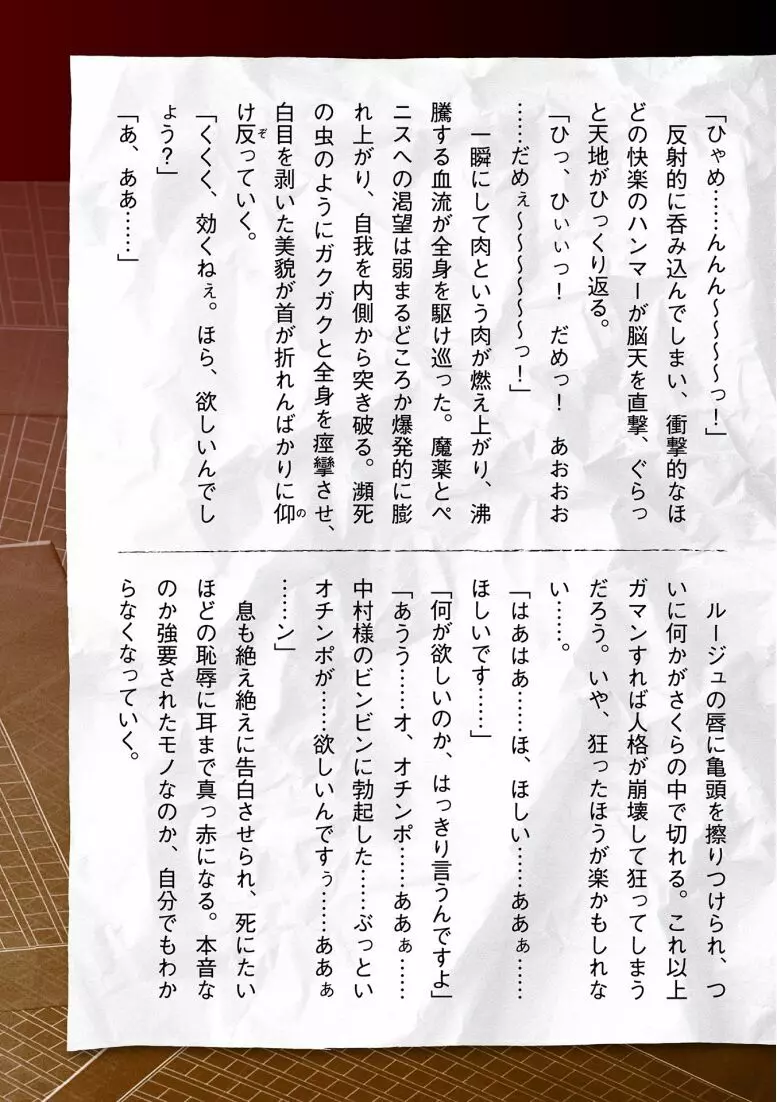 「ひゃめ……んんん～～～～っ！」
　反射的に呑み込んでしまい、衝撃的なほ
どの快楽のハンマーが脳天を直撃、ぐらっ
と天地がひっくり返る。
「ひっ、ひぃぃっ！　だめっ！　あおおお
……だめぇ～～～～～～っ！」
　一瞬にして肉という肉が燃え上がり、沸
騰する血流が全身を駆け巡った。魔薬とペ
ニスへの渇望は弱まるどころか爆発的に膨
れ上がり、自我を内側から突き破る。瀕死
の虫のようにガクガクと全身を痙攣させ、
白目を剥いた美貌が首が折れんばかりに仰の
け反ぞっていく。
「くくく、効くねぇ。ほら、欲しいんでし
ょう？」
「あ、ああ……」
　ルージュの唇に亀頭を擦りつけられ、つ
いに何かがさくらの中で切れる。これ以上
ガマンすれば人格が崩壊して狂ってしまう
だろう。いや、狂ったほうが楽かもしれな
い……。
「はあはあ……ほ、ほしい……ああぁ……
ほしいです……」
「何が欲しいのか、はっきり言うんですよ」
「あうう……オ、オチンポ……ああぁ……
中村様のビンビンに勃起した……ぶっとい
オチンポが……欲しいんですぅ……ああぁ
……ン」
　息も絶え絶えに告白させられ、死にたい
ほどの恥辱に耳まで真っ赤になる。本音な
のか強要されたモノなのか、自分でもわか
らなくなっていく。